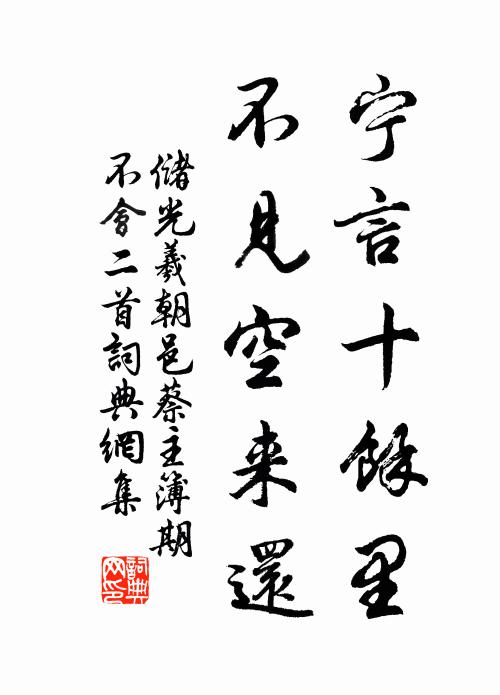 宁言十餘里
不見空来還
儲光羲朝邑蔡主簿期
不會二首詞典網集
詞典
网印